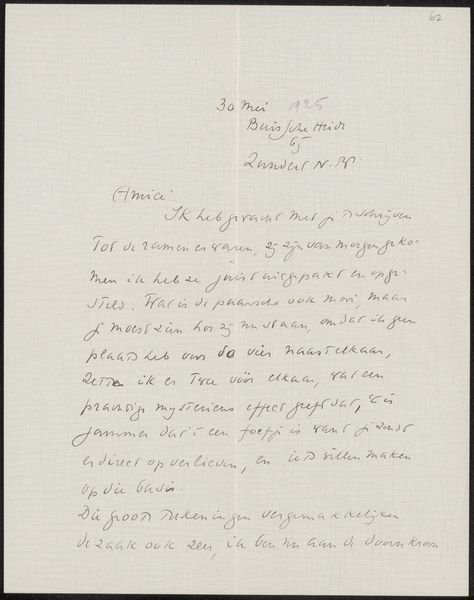 62
30 Mei 1925
Buissche Heide
bij
Zundert N. Br.
Amice
Ik heb gewacht met je te schrijven
tot de ramen er waren, zij zijn van morgen geko-
men ik heb ze juist uitgepakt en opge-
steld. Wat is de paarsche ook mooi, maar
je moest zien hoe zij nu staan, omdat ik geen
plaats heb voor de vier naast elkaar,
zette ik er twee vóór elkaar, wat een
prachtig mysterieus effect geeft dat, 't is
jammer dat 't een foefje is want je zoudt
er direct op verlieven, en iets willen maken
op die basis.
Die groote teekeningen vergemakkelijken
de zaak ook zeer, ik ben nu aan de doornkroon